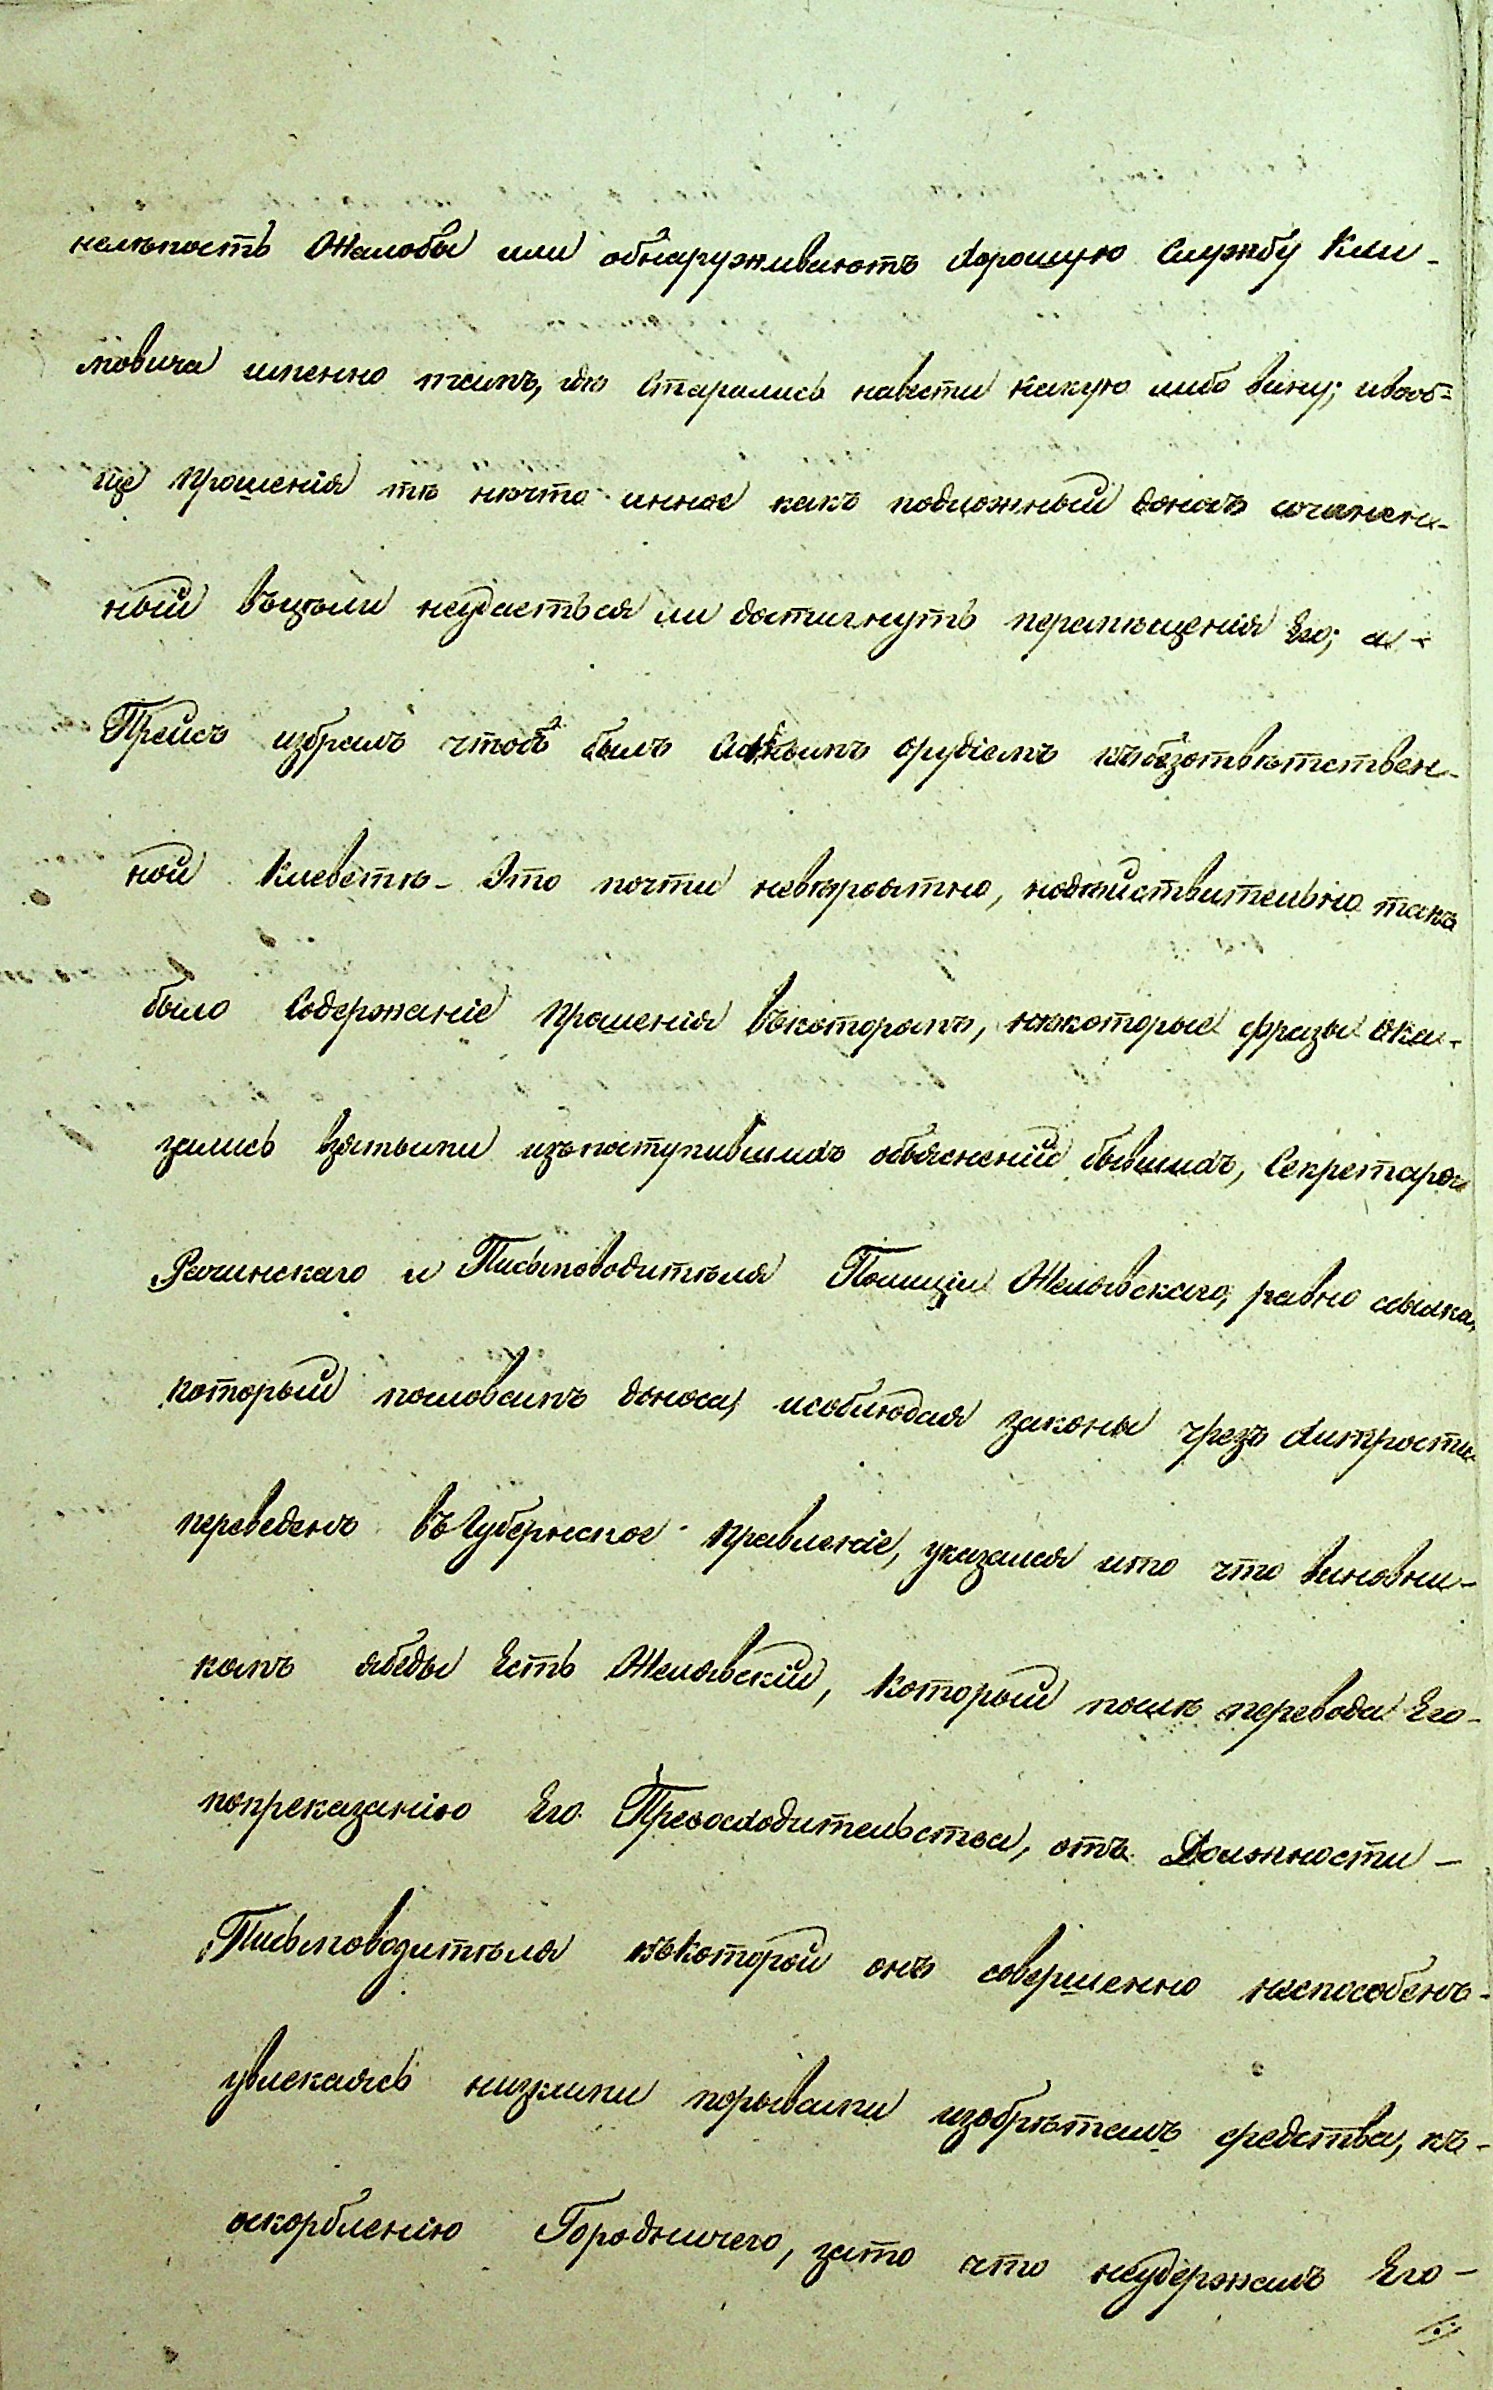 нелѣпость Жалобы или обнаруживаютъ хорошую Службу Кли-
мовича именно тамъ, гдѣ Старались навести какую либо вину; ивооб-
ще Прошенія тѣ нѣчто инное какъ подложный доносъ сочинен-
ный въцѣли неудастьсяли достигнуть перемѣщенія Его; а -
Прейсъ избралъ чтобъ былъ орудіемъ къбезотвѣтствен-
ной Клеветѣ - Это почти невѣроятно, нодѣйствительно такъ
было Содержаніе Прошенія въкоторомъ, нѣкоторые фразы ока-
зались взятыми изъпоступившихъ объясненій бывшихъ, Секретаря
Рачинскаго и Письмоводитѣля Полиціи Желявскаго, равно ссылка,
который пословамъ доноса, исоблюдая законы чрезъ хитрости
переведенъ въГубернское Правленіе, указался ито что виновни-
комъ ябеды Есть Желявскій, Который послѣ перевода Его -
поприказанію Его Превосходительства, отъ Должности -
Письмоводитѣля къКоторой онъ совершенно неспособенъ -
увлекаясь низкими порывами изобрѣталъ средства, къ -
оскорбленію Городничего, зато что неудержалъ Его -